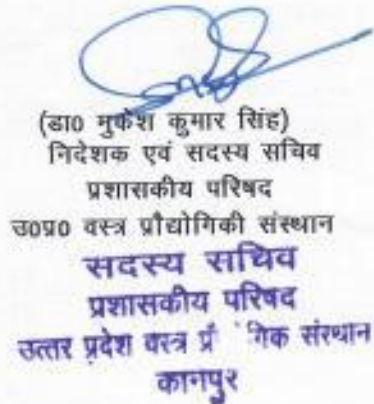 (डा0 मुकेश कुमार सिंह)
निदेशक एवं सदस्य सचिव
प्रशासकीय परिषद
उ0प्र0 वस्त्र प्रौद्योगिकी संस्थान
सदस्य सचिव
प्रशासकीय परिषद
उत्तर प्रदेश वस्त्र संस्थान
कानपुर